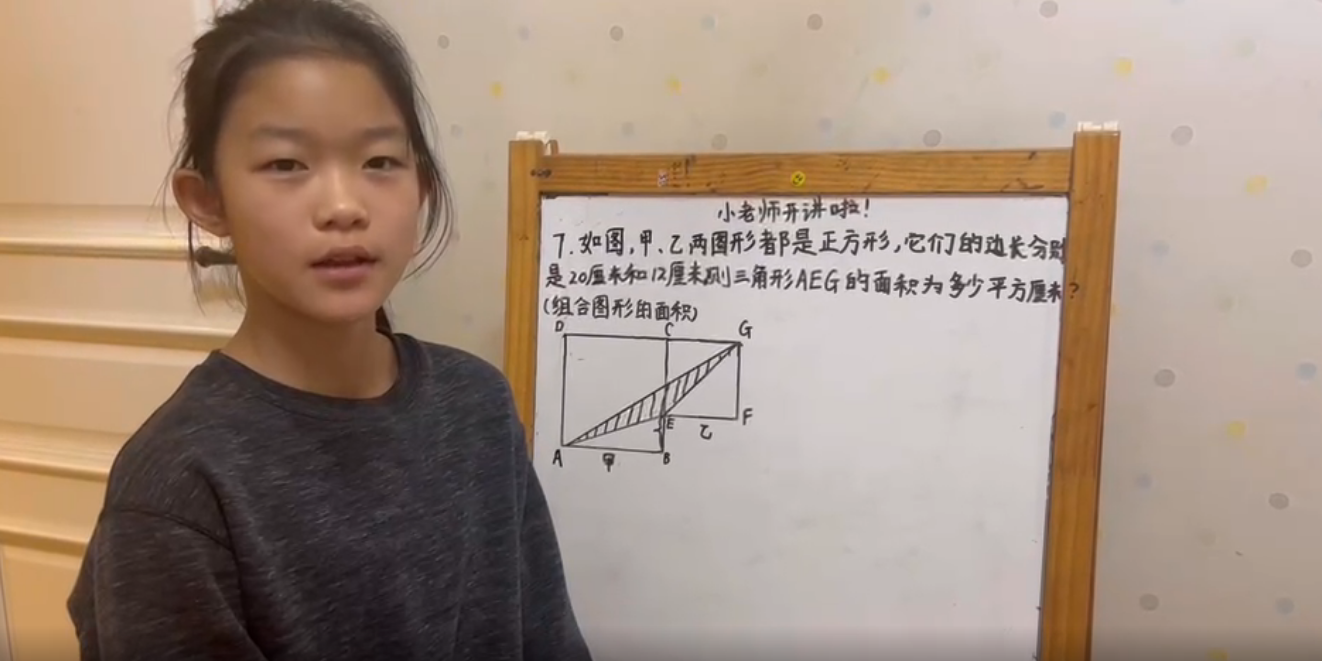 小老师开讲啦！
7.如图,甲、乙两图形都是正方形,它们的边长分别
是20厘米和12厘米,则三角形AEG的面积为多少平方厘米?
(组合图形的面积)
D C G
E F
乙
A 甲 B